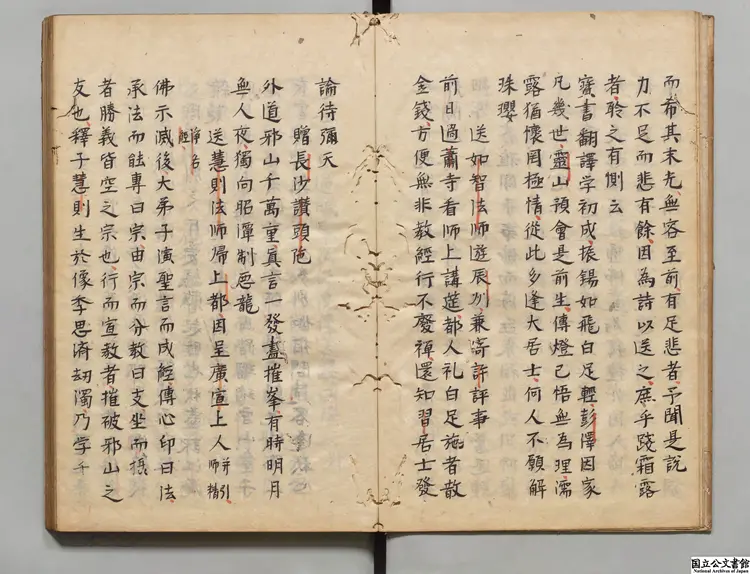 而希其末光無容至前有足悲者予聞是説
力不足而悲有餘因為詩以送之庶乎踐霜露
者聆之有惻云
齋書翻譯学初成振錫如飛白足輕彭澤因家
凡幾世靈山預會是前生傳燈已悟無為理濡
露猶懷罔極情從此多逢大居士何人不願解
珠瓔
送如智法師遊辰州兼寄許評事
前日過蕭寺看師上講筵都人礼白足施者散
金錢方便無非教經行不廢禅還知習居士發
論待彌天
贈長沙讃頭陁
外道邪山千萬重真言一發盡摧峯有時明月
無人夜獨向昭潭制惡龍
送慧則法師帰上都因呈廣宣上人并引師精
浄名經
佛示滅後大弟子演聖言而成經傳心印曰法
承法而能專曰宗由宗而分教曰支坐而攝
者勝義皆空之宗也行而宣教者摧破邪山之
友也釋子慧則生於像季思濟劫濁乃学于
国立公文書館
National Archives of Japan